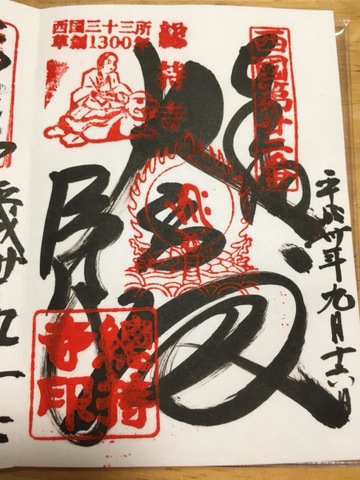 西国第廿二番
平成卅年九月十六日
大悲殿
西国三十三所
草創1300年
総持寺
總持
寺印